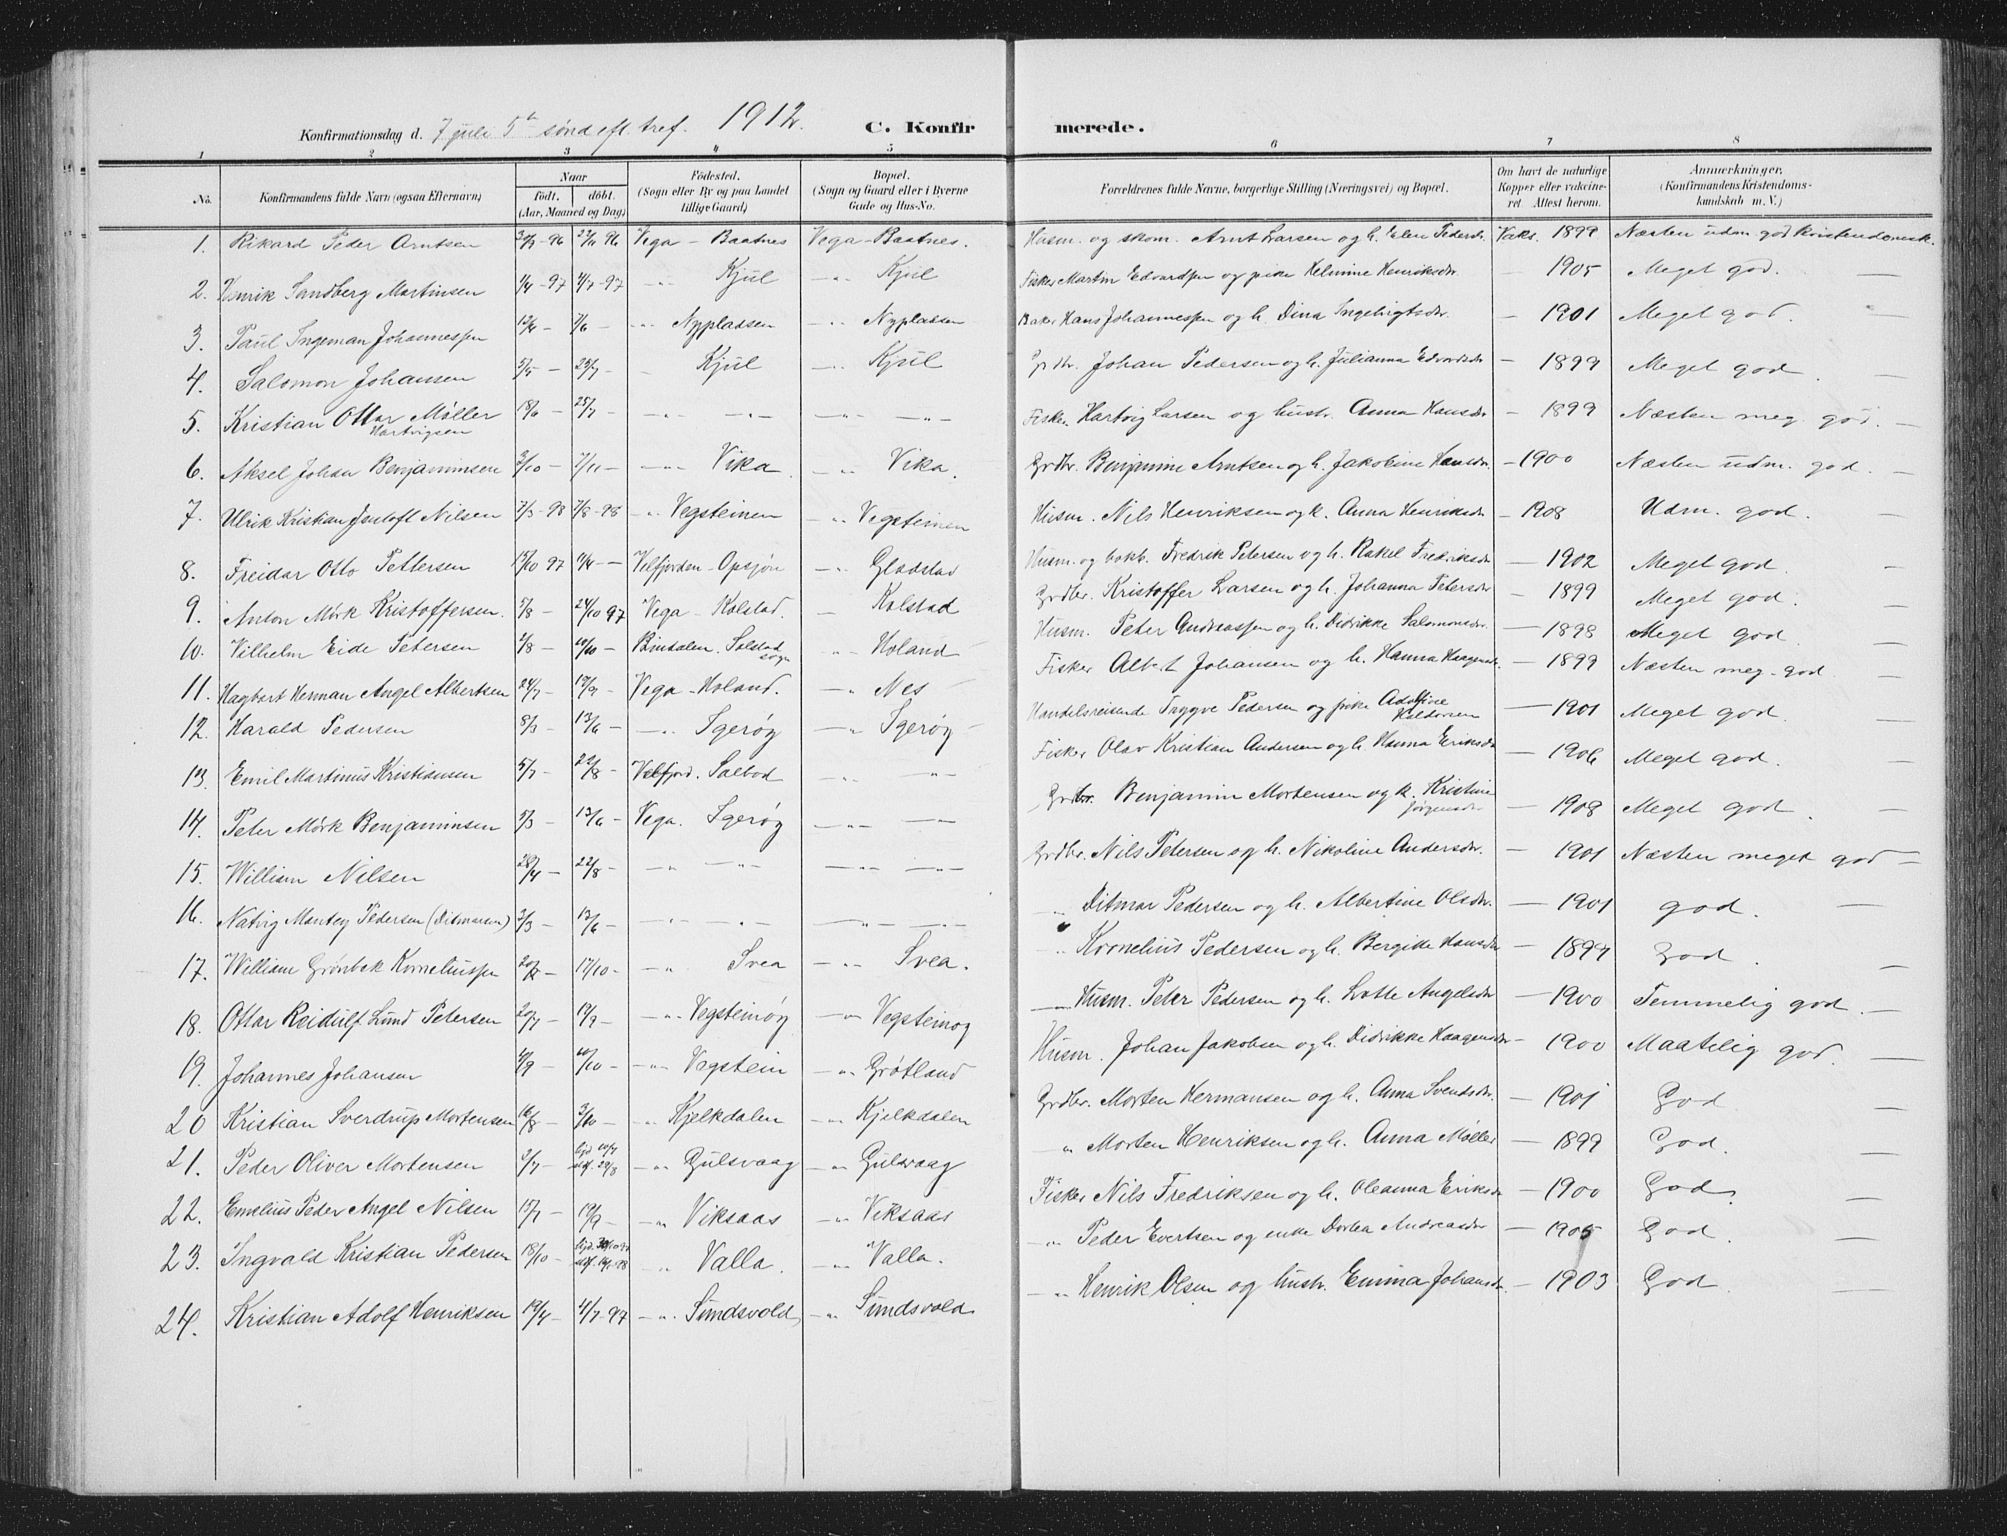 Konfirmationsdag d. 7 juli 5te sønd eft. tref. 1912. C. Konfirmerede.
1 2 3 4 5 6 7 8
No. Konfirmandens fulde Navn (ogsaa Efternavn) Naar født. døbt. (Aar, Maaned og Dag) Fødested. (Sogn eller By og paa Landet tillige Gaard). Bopæl. (Sogn og Gaard eller i Byerne Gade og Hus-No. Forældrenes fulde Navne, borgerlige Stilling (Næringsvei) og Bopæl. Om havt de naturlige Kopper eller vakcineret. Attest herom. Anmærkninger. (Konfirmandens Kristendomskundskab m. V.)
1. Rikard Peder Arntsen Vega - Baatnes Vega - Baatnes. Husm. og skom. Arnt Larsen og h. Elen Pedersdr. Vaks. 1899 Næsten udm. god Kristendomsk.
2. Henrik Sandberg Martinsen 1/4 - 97 4/7 - 97 -"- Kjul -"- Kjul Fisker Martin Edvardsen og pike Helmine Henriksdr. - 1905 Meget god. -
3. Paul Ingeman Johannessen 12/4 - 7/6 - -"- Nyplassen -"- Nyplassen Baker Hans Johannessen og h. Dina Ingebrigtsdr. - 1901 Meget god. -
4. Salomon Johansen 5/5 - 25/7 - - Kjul -"- Kjul Grdbr. Johan Pedersen og h. Julianna Edvardsdr. - 1899 Meget god. -
5. Kristian Ottar Møller Hartvigsen 18/6 - 25/7 - -"- -"- -"- -"- Fisker Hartvig Larsen og hustr. Anna Hansdr. - 1899 Næsten meg. god. -
6. Aksel Johan Benjaminsen 3/10 - 7/11 - -"- Vika -"- Vika. Grdbr. Benjamine Arntsen og h. Jakobine Hansdr. - 1900 Næsten udm. god. -
7. Ulrik Kristian Jentoft Nilsen 7/8 - 98 -"- Vegsteinen -"- Vegsteinen Husm. Nils Henriksen og h. Anna Henriksdr. - 1908 Udm. god. -
8. Freidar Otto Pettersen 15/10 97 Velfjorden - Opsjøn -"- Gladstad Husm. og bokb. Fredrik Petersen og h. Rakel Fredriksdr. - 1902 Meget god. -
9. Anton Mörk Kristoffersen 5/8 - 24/10 97 Vega - Kolstad. - Kolstad Grdbr. Kristoffer Larsen og h. Johanna Petersdr. - 1899 Meget god. -
10. Vilhelm Eide Petersen 2/8 - 10/10 - Bindalen. Solstad sogn -"- Holand - Husm. Peter Andreassen og h. Didrikke Salomonsdr. - 1898 Meget god. -
11. Hagbart Herman Angel Albertsen 24/7 - 19/9 - Vega - Holand. -"- Nes - Fisker Albert Johansen og h. Hanna Haagensdr. - 1899 Næsten meg. god. -
12. Harald Pedersen 8/3 - 13/6 - -"- Igerøy -"- Igerøy - Handelsreisende Trygve Pedersen og pike Adolfine Haldorsen - 1901 Meget god. -
13. Emil Martinus Kristiansen 5/7 - 22/8 - Velfjord. Salbod -"- -"- Fisker Olav Kristian Andersen og h. Hanna Eriksdr. - 1906 Meget god. -
14. Peter Mørk Benjaminsen 5/3 - 13/6 - Vega. Igerøy -"- - Grdbr. Benjamin Mortensen og h. Kristine Jørgensdr. - 1908 Meget god. -
15. William Nilsen 28/4 - 22/8 - -"- -"- -"- -"- Grdbr. Nils Petersen og h. Nikoline Andersdr. - 1901 Næsten meget god -
16. Nativg Mantey Pedersen (Ditmarsen) 2/3 - 13/6 - -"- -"- -"- -"- " Ditmar Pedersen og h. Albertine Olsdr. - 1901 god. -
17. William Grønbek Korneliussen 17/10 - -"- Svea -"- Svea. " Kornelius Pedersen og h. Bergitte Hansdr. - 1899 God. -
18. Ottar Reidulf Lund Petersen 20/7 - 19/9 - -"- Vegsteinøy -"- Vegsteinøy - Husm. Peter Pedersen og h. Lotte Angelsdr. - 1900 Temmelig god. -
19. Johannes Johansen 4/9 - 10/10 - -"- Vegstein -"- Grøtland Husm. Johan Jakobsen og h. Didrikke Haagensdr. - 1900 Maatelig god. -
20 Kristian Sverdrup Mortensen 16/8 - 3/10 - -"- Kjelkdalen -"- Kjelkdalen Grdbr. Morten Hermansen og h. Anna Svendsdr. - 1901 God -
21. Peder Oliver Mortensen 2/7 - stf. 29/8 -"- Gulsvaag -"- Gulsvaag " Morten Henriksen og h. Anna Møller - 1899 God. -
22. Emelius Peder Angel Nilsen 15/7 - 19/9 - -"- Viksaas -"- Viksaas Fisker Nils Fredriksen og h. Oleanna Eriksdr. - 1900 God. -
23. Ingvald Kristian Pedersen 18/10 - -"- Valla. -"- Valla. -"- Peder Evertsen og enke Dortea Andreasdr. - 1905 God. -
24. Kristian Adolf Henriksen 19/4 - 4/7 - 97 -"- Sundsvold -"- Sundsvold. -"- Henrik Olsen og hustr. Emma Johansdr. - 1903 God. -